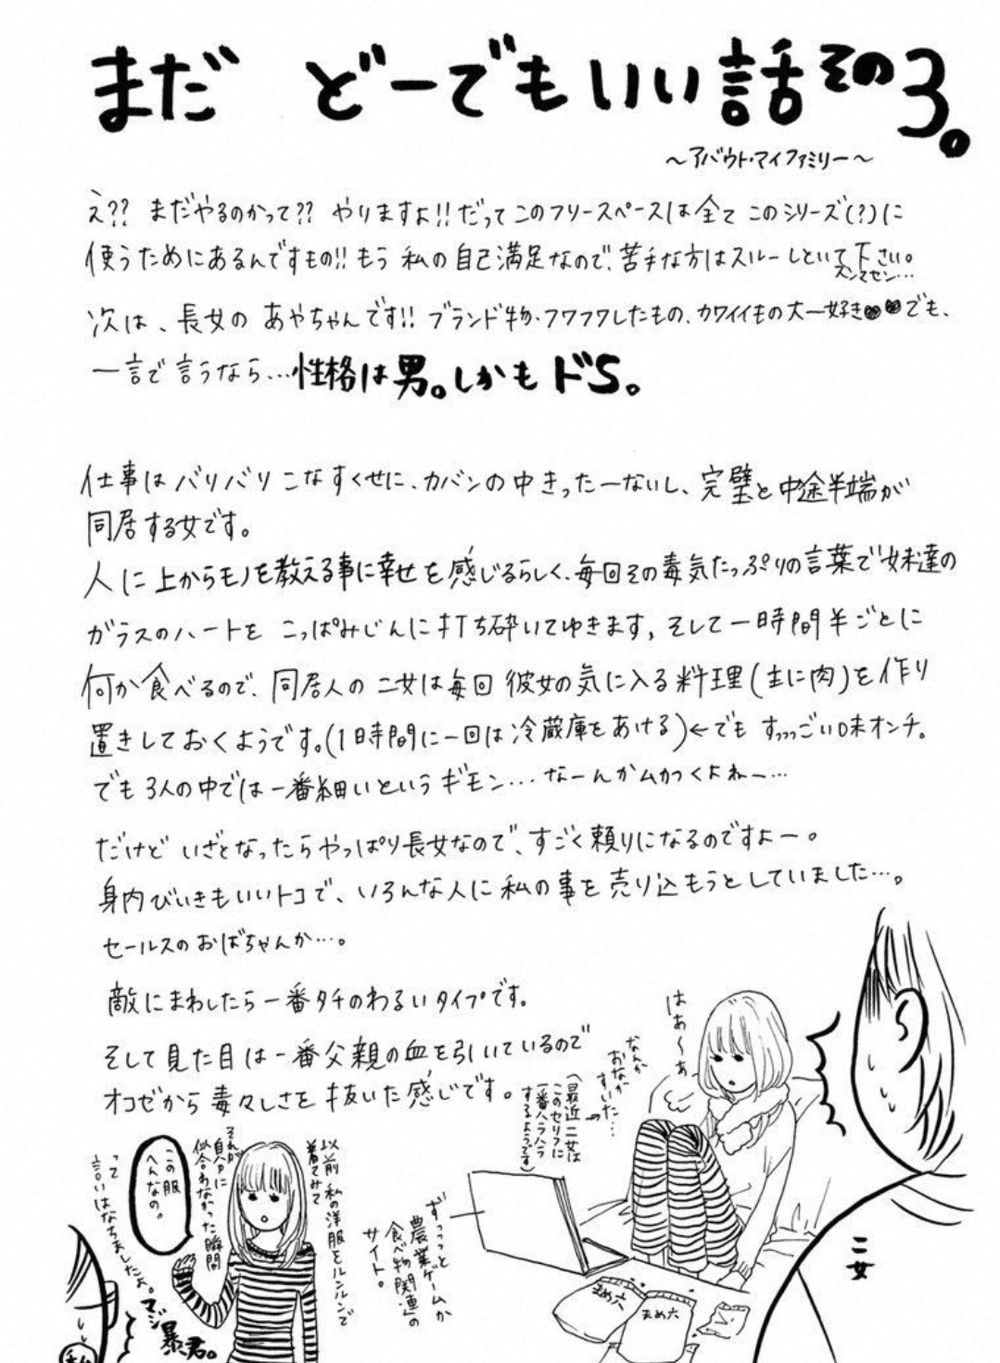 まだ どーでもいい話その3。
～アバウト・マイファミリー～
え?? まだやるのかって?? やりますよ!! だってこのフリースペースは全てこのシリーズ(?)に
使うためにあるんですもの!! もう私の自己満足なので、苦手な方はスルーしといて下さい。
スンマセン…
次は、長女の あやちゃんです!! ブランド物・フワフワしたもの、カワイイもの大ー好き♥♥でも、
一言で言うなら…性格は男。しかもドS。
仕事はバリバリこなすくせに、カバンの中きったーないし、完璧と中途半端が
同居する女です。
人に上からモノを教える事に幸せを感じるらしく、毎回その毒気たっぷりの言葉で妹達の
ガラスのハートを こっぱみじんに打ち砕いてゆきます。そして一時間半ごとに
何か食べるので、同居人の二女は毎回 彼女の気に入る料理(主に肉)を作り
置きしておくようです。(1時間に一回は冷蔵庫をあける)←でも すっっごい味オンチ。
でも3人の中では一番細いというギモン… なーんかムカつくよねー…
だけど いざとなったらやっぱり長女なので、すごく頼りになるのですよー。
身内びいきもいいトコで、いろんな人に私の事を売り込もうとしていました…。
セールスのおばちゃんか…。
敵にまわしたら一番タチのわるいタイプです。
そして見た目は一番父親の血を引いているので
オコゼから毒々しさを抜いた感じです。
はぁ〜ぁ
なんか
おなか
すいた…
(最近二女は
このセリフに
一番ハラハラ
するようです)
ずっっっと
農業ゲームか
食べ物関連の
サイト。
まめ六
まめ六
二女
以前 私の洋服をルンルンで
着てみて
それが
自分に
似合わなかった瞬間
この服
へんなの。
って
言いはなちましたよ。マジ
暴君。
私